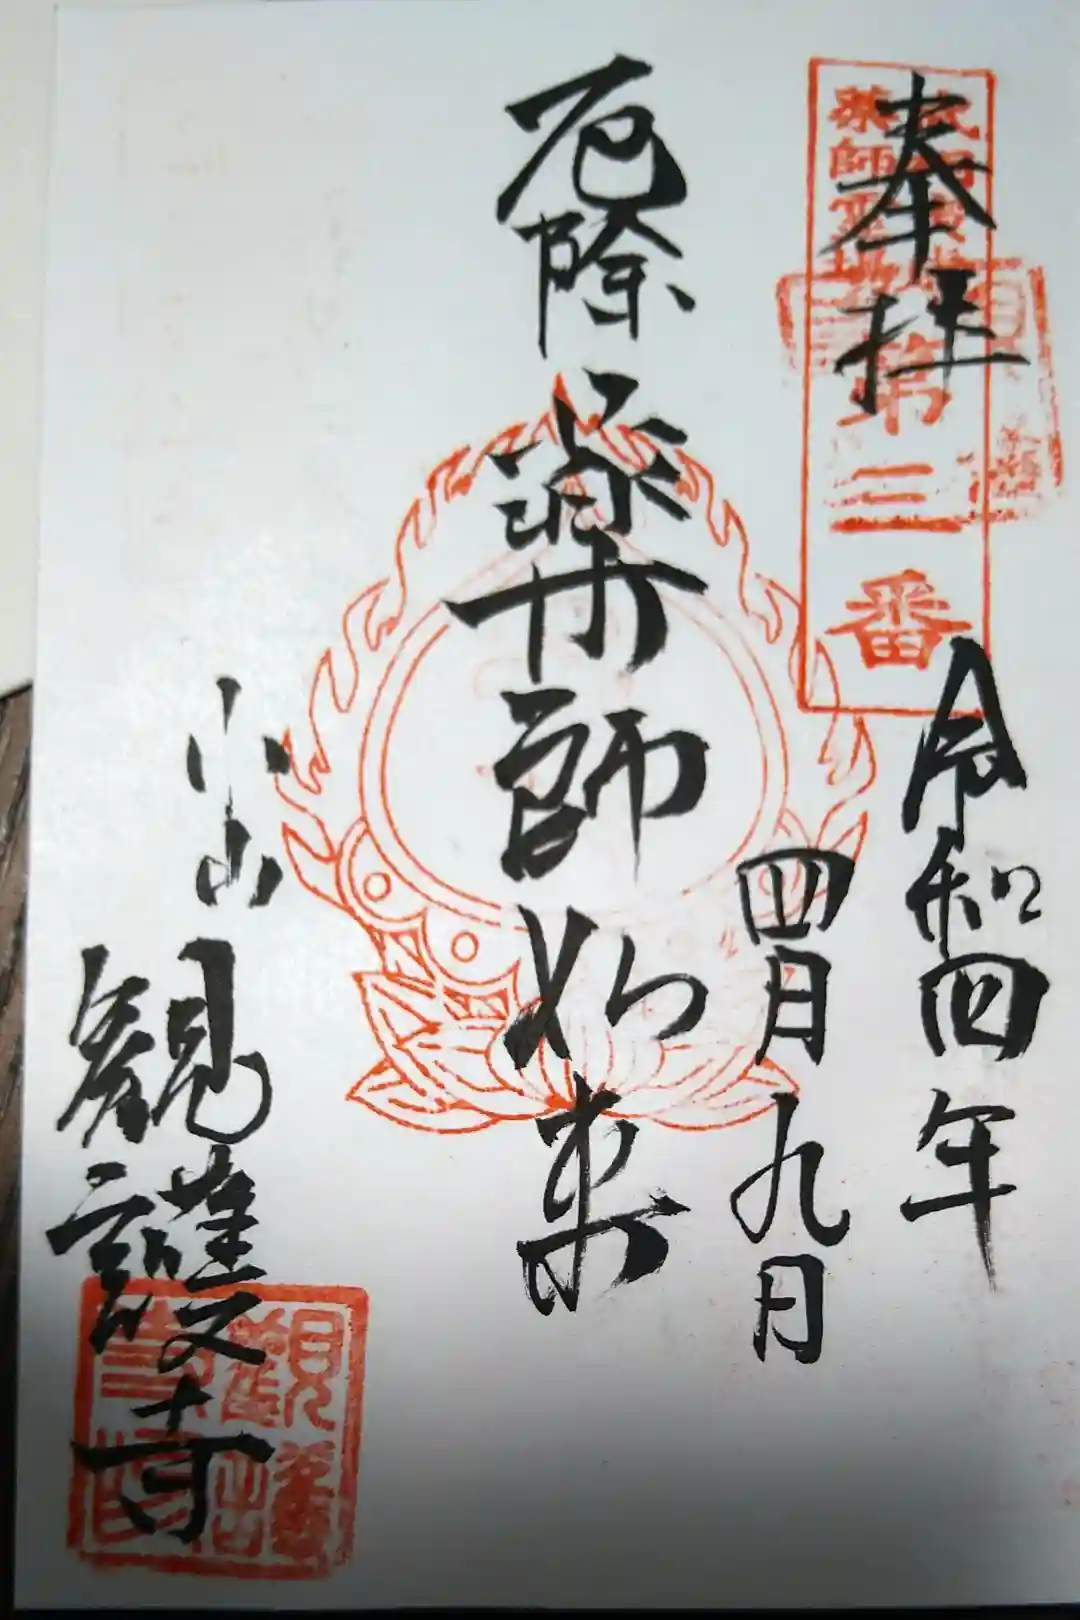 奉拝
薬師霊場
第三番
令和四年
四月九日
厄除薬師如来
小山
観護寺